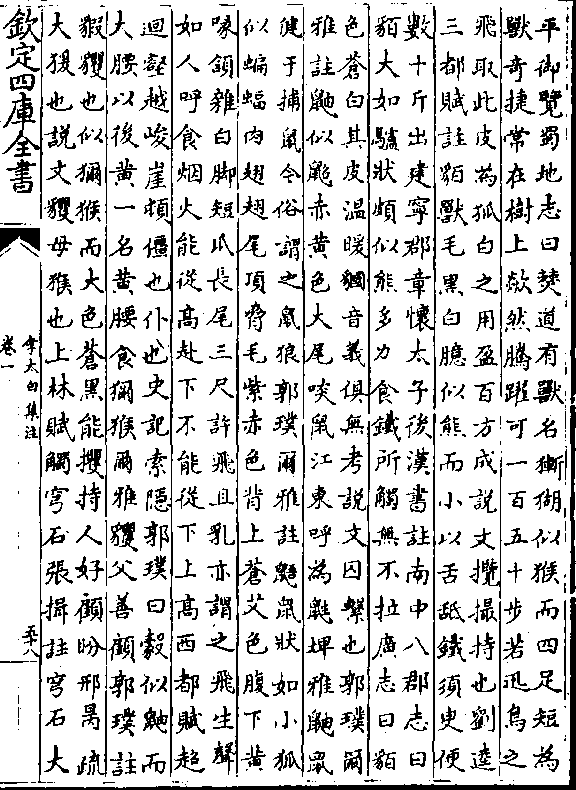 平御覽蜀地志曰僰道有獸名獑猢似猴而四足短為
獸奇捷常在樹上歘然騰躍可一百五十步若迅鳥之
飛取此皮為狐白之用盈百方成說文攬撮持也劉逵
三都賦註貊獸毛黑白臆似熊而小以舌舐鐵須臾便
數十斤出建寧郡章懷太子後漢書註南中八郡志曰
貊大如驢狀頗似熊多力食鐵所觸無不拉廣志曰貊
色蒼白其皮温暖貊音義俱無考說文囚繫也郭璞爾
雅註鼬似鼦赤黄色大尾啖鼠江東呼為鼪埤雅鼬鼠
健于捕鼠今俗謂之鼠狼郭璞爾雅註鼯鼠狀如小狐
似蝙蝠肉翅翅尾項脅毛紫赤色背上蒼艾色腹下黄
喙頷雜白脚短爪長尾三尺許飛且乳亦謂之飛生聲
如人呼食烟火能從高赴下不能從下上高西都賦超
迴壑越峻崖頓僵也仆也史記索隱郭璞曰縠似鼬而
大腰以後黄一名黄腰食獮猴爾雅玃父善顧郭璞註
貑玃也似獮猴而大色蒼黑能攫持人好顧盼邢昺疏
大猨也說文玃母猴也上林賦觸穹石張揖註穹石大
欽定四庫全書
李太白集注
卷一
五十八